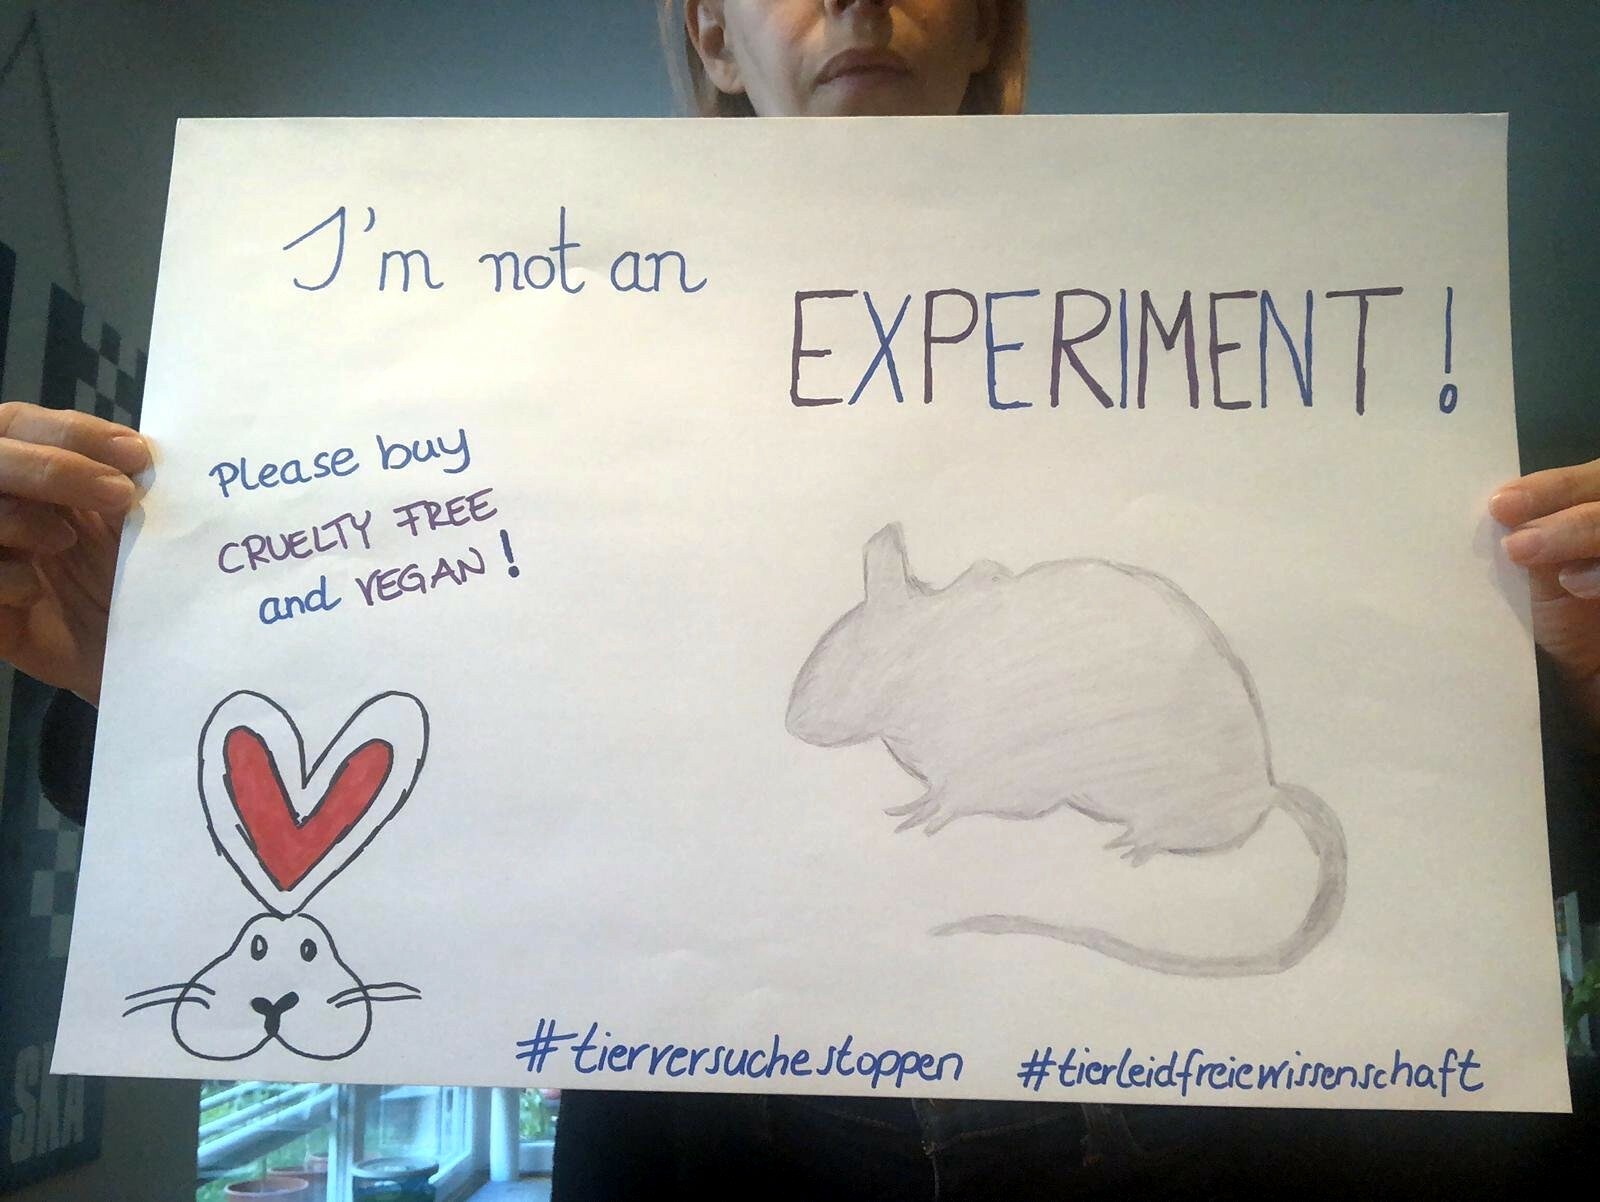 I'm not an
EXPERIMENT!
Please buy
CRUELTY FREE
and VEGAN!
#tierversuchestoppen #tierleidfreiewissenschaft
SKA